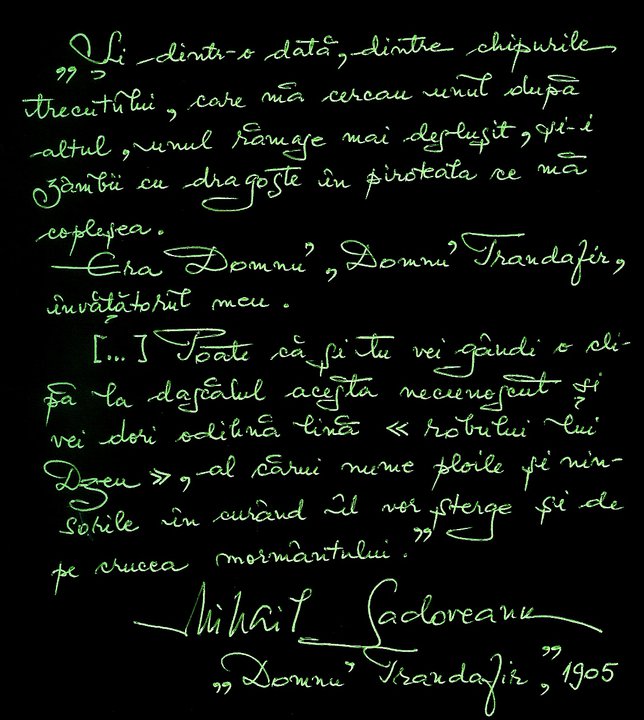 „Și dintr-o dată, dintre chipurile
trecutului, care mă cercau unul după
altul, unul rămase mai deslușit, și-i
zâmbii cu dragoste în piroteala ce mă
copleșea.
—Era Domnu', Domnu' Trandafir,
învățătorul meu.
[...] Poate că și tu vei gândi o cli-
pă la dascălul acesta necunoscut și
vei dori odihnă lină « robului lui
Dzeu », al cărui nume ploile și nin-
sorile în curând îl vor șterge și de
pe crucea mormântului.”
Mihail Sadoveanu
„Domnu' Trandafir”, 1905